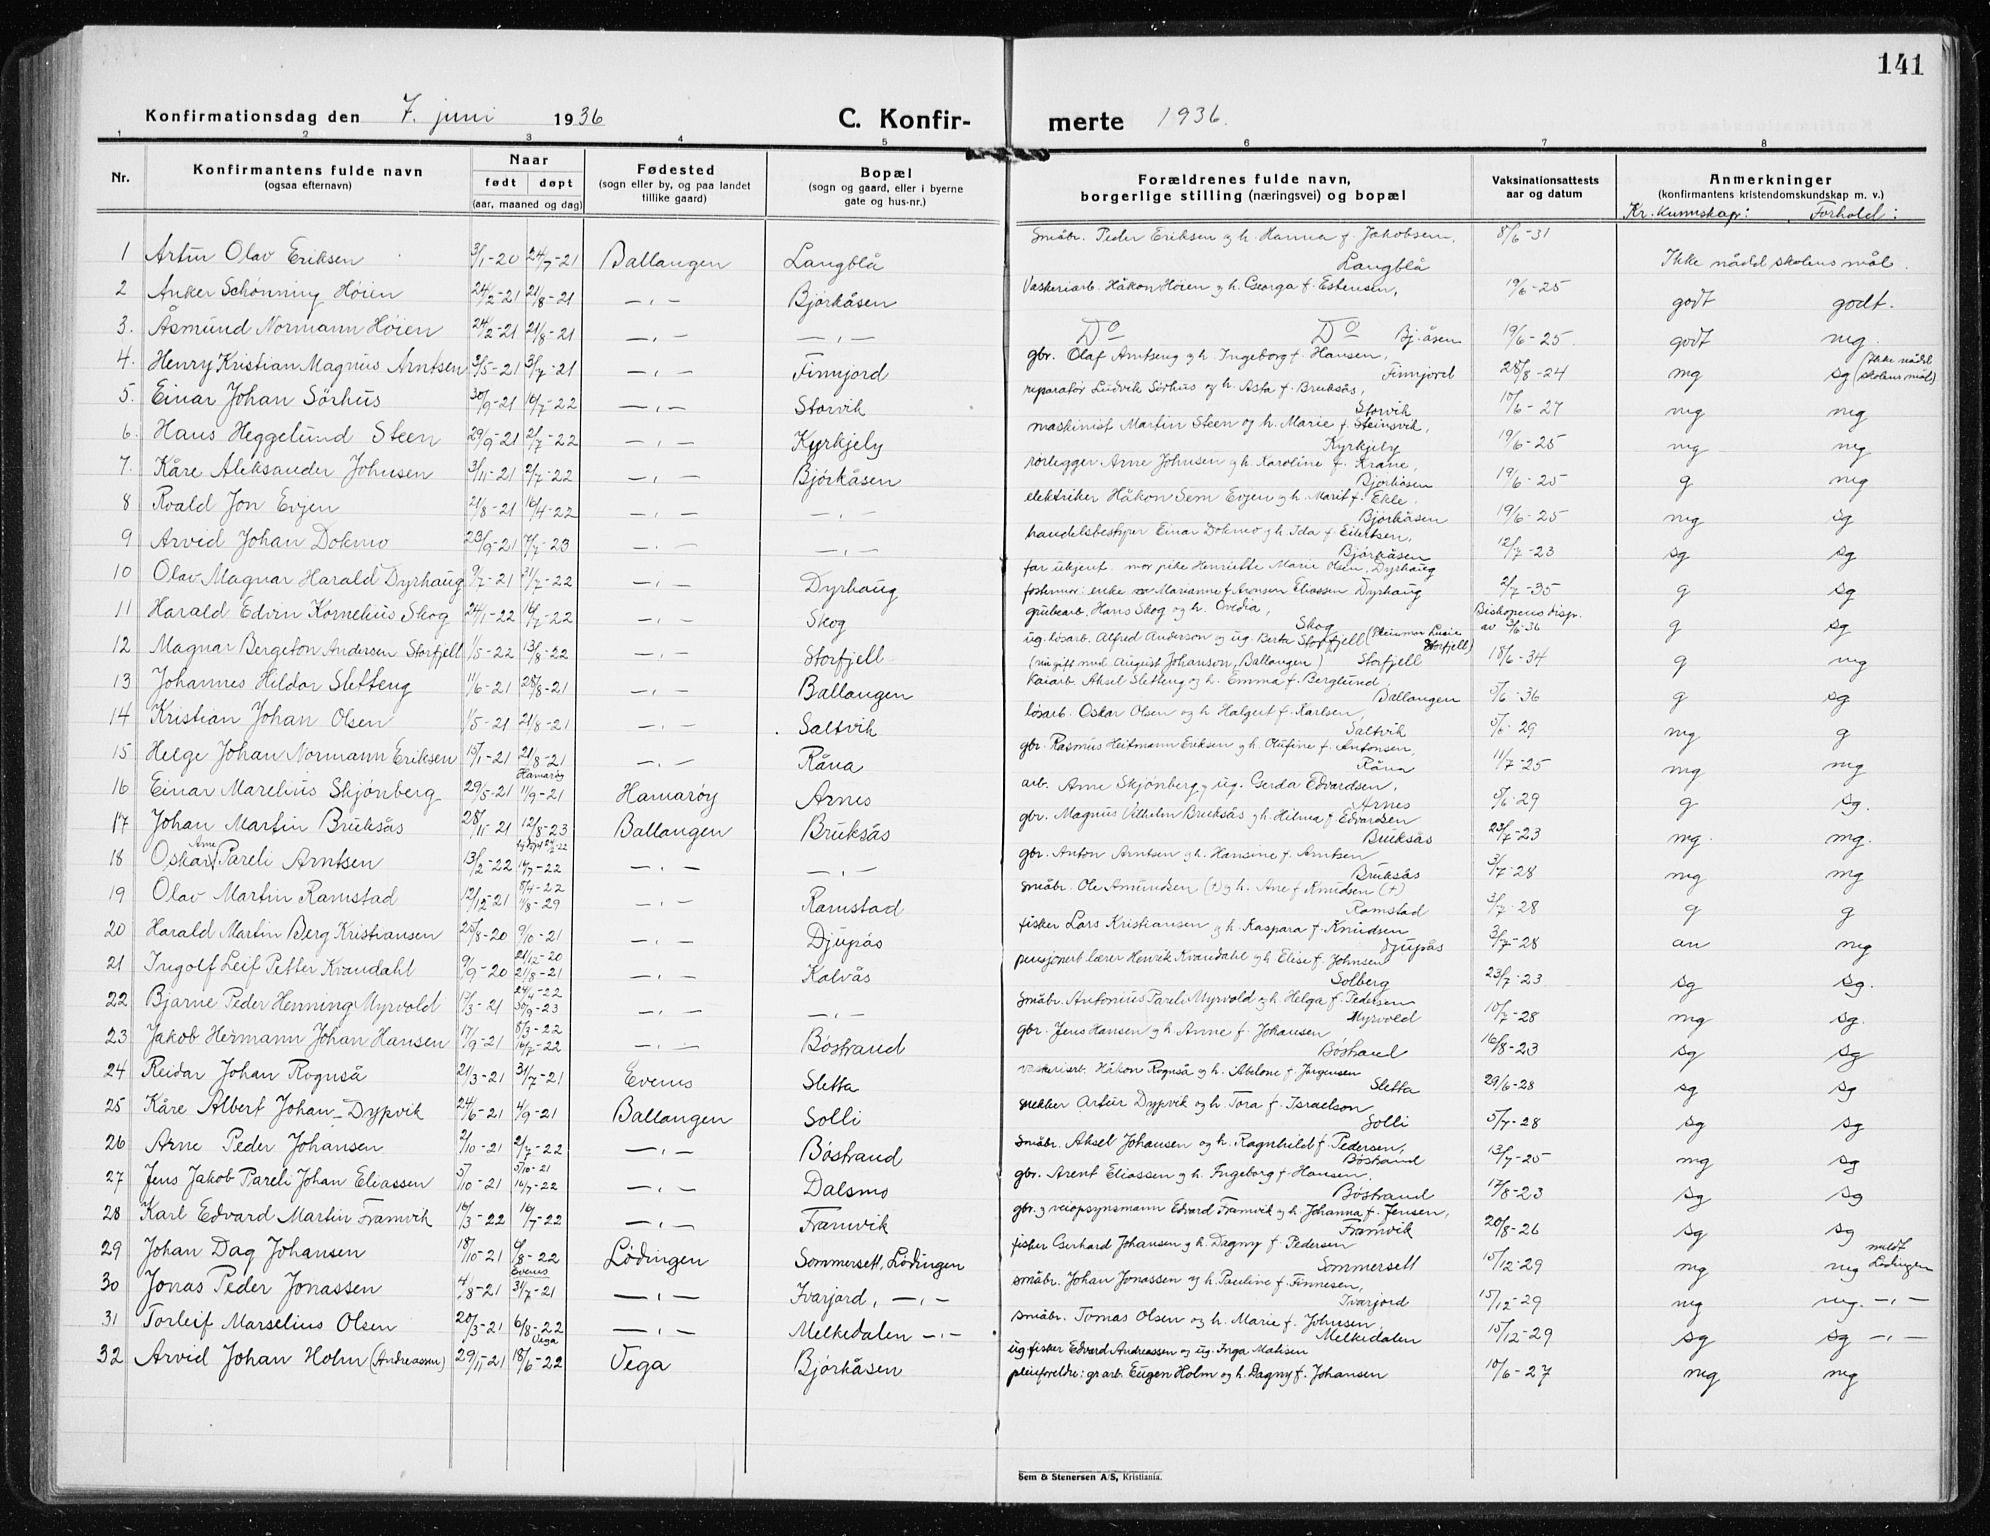 141
Konfirmationsdag den 7. juni 1936 C. Konfir- merte 1936.
1 2 3 4 5 6 7 8
Nr. Konfirmantens fulde navn (ogsaa efternavn) Naar født døpt (aar, maaned og dag) Fødested (sogn eller by, og paa landet tillike gaard) Bopæl (sogn og gaard, eller i byerne gate og hus-nr.) Forældrenes fulde navn, borgerlige stilling (næringsvei) og bopæl Vaksinationsattests aar og datum Anmerkninger (konfirmantens kristendomskundskap m. v.)
Kr. kunnskap: Forhold:
1 Artur Olav Eriksen 3/1-20 24/7-21 Ballangen Langblå Småbr. Peder Eriksen og h. Hanna f. Jakobsen, Langblå 8/6-31 Ikke nådd skolens mål.
2 Anker Schønning Høien 24/2-21 21/8-21 —„— Bjørkåsen Vaskeriarb. Håkon Høien og h. Georga f. Estensen, 19/6-25 godt godt.
3. Åsmund Normann Høien 24/2-21 21/8-21 —„— —„— Do Do Bj.åsen 19/6-25. godt mg.
4. Henry Kristian Magnus Arntsen 3/5-21 31/7-21 —„— Finnjord gbr. Olaf Arntsen og h. Ingeborg f. Hansen, Finnjord 28/8-24 mg sg (Ikke nådd skolens mål)
5. Einar Johan Sörhus 30/9-21 16/7-22 —„— Storvik reparatør Ludvik Sörhus og h. Asta f. Bruksås, Storvik 10/6-27 mg mg
6. Hans Heggelund Steen 29/9-21 2/7-22 —„— Kyrkjely maskinist Martin Steen og h. Marie f. Steinsvik, Kyrkjely 19/6-25 mg mg
7. Kåre Aleksander Johnsen 3/11-21 2/7-22 —„— Bjørkåsen rørlegger Arne Johnsen og h. Karoline f. Krane, Bjørkåsen 19/6-25 g mg
8 Roald Jon Evjen 21/8-21 16/4-22 —„— —„— elektriker Håkon Sem Evjen og h. Marit f. Ekle. Bjørkåsen 19/6-25 mg sg
9 Arvid Johan Dokmo 23/9-21 7/7-23 —„— —„— handelsbestyrer Einar Dokmo og h. Ida f. Eilertsen, Bjørkåsen 12/7-23 sg sg
10 Olav Magnar Harald Dyrhaug 9/7-21 31/7-22 —„— Dyrhaug far ukjent. mor pike Henriette Marie Olsen, Dyrhaug fostermor: enke Marianne f. Aronsen Eliassen Dyrhaug 2/7-35 g sg
11 Harald Edvin Kornelius Skog 24/1-22 16/7-22 —„— Skog grubearb. Hans Skog og h. Ovedia, Skog Biskopens disp. av 3/6-36 g sg
12 Magnar Bergeton Andersen Storfjell 1/5-22 13/8-22 —„— Storfjell ug. løsarb. Alfred Anderson og ug. Berta Storfjell (Pleiemor Lucie Storfjell) (nu gift med August Johanson, Ballangen) Storfjell 18/6-34 g mg
13 Johannes Hildar Sletteng 11/6-21 28/8-21 —„— Ballangen Kaiarb. Aksel Sletteng og h. Emma f. Berglund, Ballangen 5/6-36 g sg
14 Kristian Johan Olsen 1/5-21 21/8-21 —„— Saltvik løsarb. Oskar Olsen og h. Halgert f. Karlsen, Saltvik 5/6-29 mg g
15 Helge Johan Normann Eriksen 15/1-21 21/8-21 —„— Råna gbr. Rasmus Heitmann Eriksen og h. Olufine f. Antonsen, Råna 11/7-25 mg mg
16 Einar Marelius Skjönberg 29/5-21 Hamarøy 11/9-21 Hamarøy Arnes arb. Arne Skjönberg, ug. Gerda Edvardsen, Arnes 5/6-29 g sg.
17 Johan Martin Bruksås 28/11-21 12/8-23 Ballangen Bruksås gbr. Magnus Vilhelm Bruksås og h. Hilma f. Edvardsen Bruksås 23/7-23 mg. mg.
18 Oskar Arne Pareli Arntsen 13/2-22 16/7-22 —„— —„— gbr. Anton Arntsen og h. Hansine f. Arntsen Bruksås 3/7-28 mg mg
19 Olav Martin Ramstad 12/12-21 8/4-22 11/8-29 —„— Ramstad småbr. Ole Amundsen (†) og h. Ane f. Knudsen (†) Ramstad 3/7-28 g g
20 Harald Martin Berg Kristiansen 25/8-20 9/10-21 —„— Djupås fisker Lars Kristiansen og h. Kaspara f. Knudsen Djupås 3/7-28 an mg
21 Ingolf Leif Petter Kvandahl 9/9-20 21/12-20 21/8-21 —„— Kalvås pensjonert lærer Henrik Kvandahl og h. Elise f. Johnsen Solberg 23/7-23 sg sg.
22 Bjarne Peder Henning Myrvold 17/3-21 24/4-22 30/9-23 —„— —„— småbr. Antonius Pareli Myrvold og h. Helga f. Pedersen Myrvold 10/7-28 mg sg.
23 Jakob Hermann Johan Hansen 17/9-21 8/3-22 16/7-22 —„— Böstrand gbr. Jens Hansen og h. Anne f. Johansen Böstrand 16/8-23 sg sg
24 Reidar Johan Rognså 21/3-21 31/7-21 Evenes Sletta vaskeriarb. Håkon Rognså og h. Abelone f. Jørgensen Sletta 29/6-28 sg sg
25 Kåre Albert Johan Dypvik 24/6-21 4/9-21 Ballangen Solli snekker Artur Dypvik og h. Tora f. Israelson Solli 5/7-28 sg sg
26 Arne Peder Johansen 2/10-21 2/7-22 —„— Böstrand småbr. Aksel Johansen og h. Ragnhild f. Pedersen, Böstrand 13/7-25 mg sg
27 Jens Jakob Pareli Johan Eliassen 5/10-21 5/10-21 16/7-22 —„— Dalsmo gbr. Arent Eliassen og h. Ingeborg f. Hansen. Böstrand 17/8-23 sg sg
28 Karl Edvard Martin Framvik 16/3-22 16/7-22 —„— Framvik gbr. og veiopsynsmann Edvard Framvik og h. Johanna f. Jensen, Framvik 20/8-26 sg sg
29 Johan Dag Johansen 18/10-21 6/8-22 Lødingen Sommersett, Lødingen fisker Gerhard Johansen og h. Dagny f. Pedersen Sommersett 15/12-29 mg mg meldt Lødingen
30 Jonas Peder Jonassen 4/8-21 Evenes 31/7-21 —„— Ivarjord, —„— småbr. Johan Jonassen og h. Pauline f. Finnesen, Ivarjord 15/12-29 mg mg. —„—
31 Torleif Marselius Olsen 20/3-21 6/8-22 —„— Melkedalen —„— småbr. Tomas Olsen og h. Marie f. Johnsen, Melkedalen 15/12-29 sg sg —„—
32 Arvid Johan Holm (Andreassen) 29/11-21 Vega 18/6-22 Vega Bjørkåsen ug fisker Edvard Andreassen og ug. Inga Matisen pleieforeldre: grarb. Eugen Holm og h. Dagny f. Johansen 10/6-27 mg mg
Sem & Stenersen A/S, Kristiania.